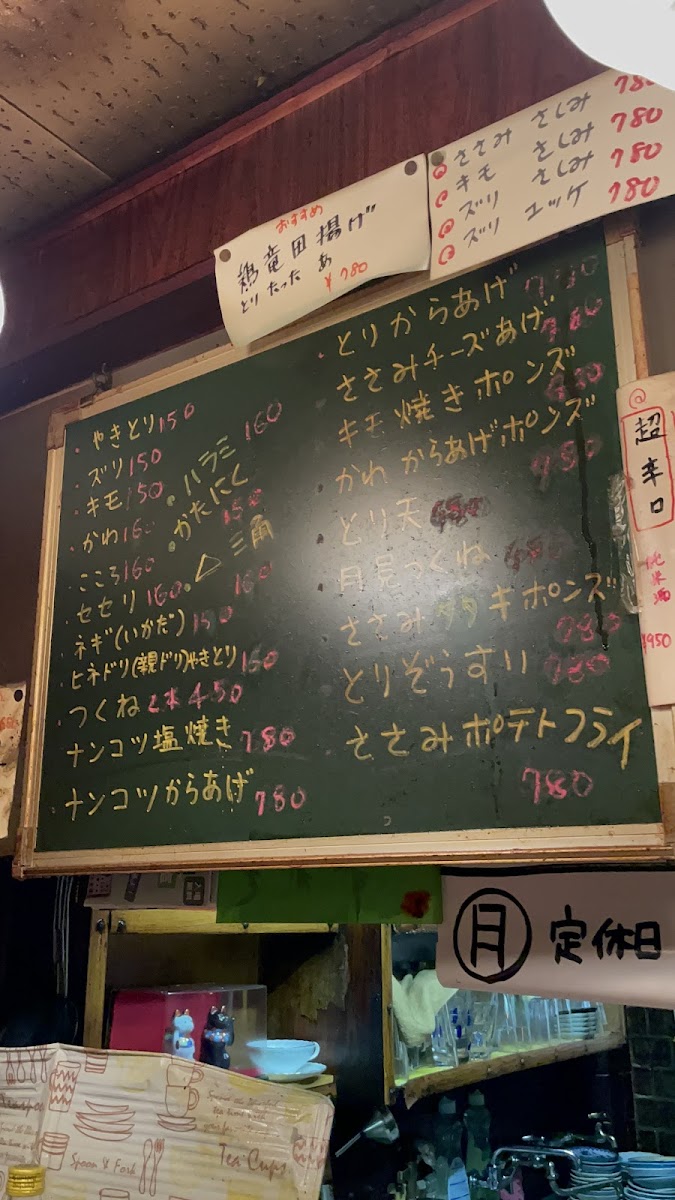 ささみ さしみ 780
キモ さしみ 780
ズリ さしみ 780
ズリ ユッケ 780
おすすめ
鶏竜田揚げ
とり たった あ
¥780
やきとり150
ズリ150
キモ150
かわ160
こころ160
セセリ160
ネギ(いかだ)150
ヒネドリ(親ドリ)やきとり150
つくね2本450
ナンコツ塩焼き780
ナンコツからあげ780
ハラミ160
かたにく150
△三角160
とりからあげ780
ささみチーズあげ
キモ焼きポンズ
かわからあげポンズ
780
とり天
月見つくね
ささみタタキポンズ
780
とりぞうすい780
ささみポテトフライ
780
超辛口
純米酒
¥950
月 定休日
Spoon & Fork
Tea Cups